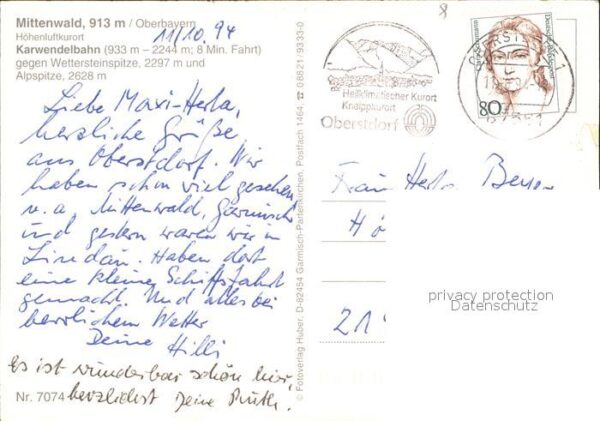 Mittenwald, 913 m / Oberbayern
Höhenluftkurort
Karwendelbahn (933 m – 2244 m; 8 Min. Fahrt)
gegen Wettersteinspitze, 2297 m und
Alpspitze, 2628 m
11/10. 94
Liebe Maxi-Herta,
herzliche Grüße
aus Oberstdorf. Wir
haben schon viel gesehen
u. a. Mittenwald, Garmisch
und gestern waren wir in
Lindau. Haben dort
eine kleine Schiffsfahrt
gemacht. Und alles bei
herrlichem Wetter
Deine Hilli
Es ist wunderbar schön hier,
herzlichst Deine Ruth.
Nr. 7074
© Fotoverlag Huber, D-82454 Garmisch-Partenkirchen, Postfach 1464 ☎ 08821-9333-0
Heilklimatischer Kurort
Kneippkurort
Oberstdorf
Deutsche Bundespost
80
Frau Herta
H
21
privacy protection
Datenschutz